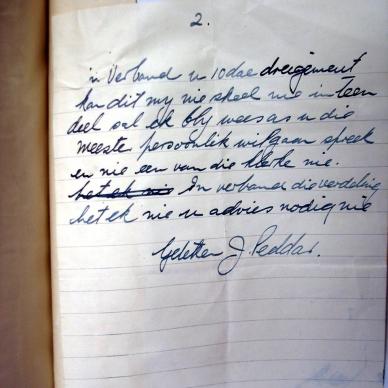 2.
in Verband u 10 dae dreigement
kan dit my nie skeel nie inteen
deel sal ek bly wees as u die
meeste persoonlik wil gaan spreek
en nie een van die klerke nie.
het ek nie In verband die verdeling
het ek nie u advies nodig nie
Geteken J. Peddar.